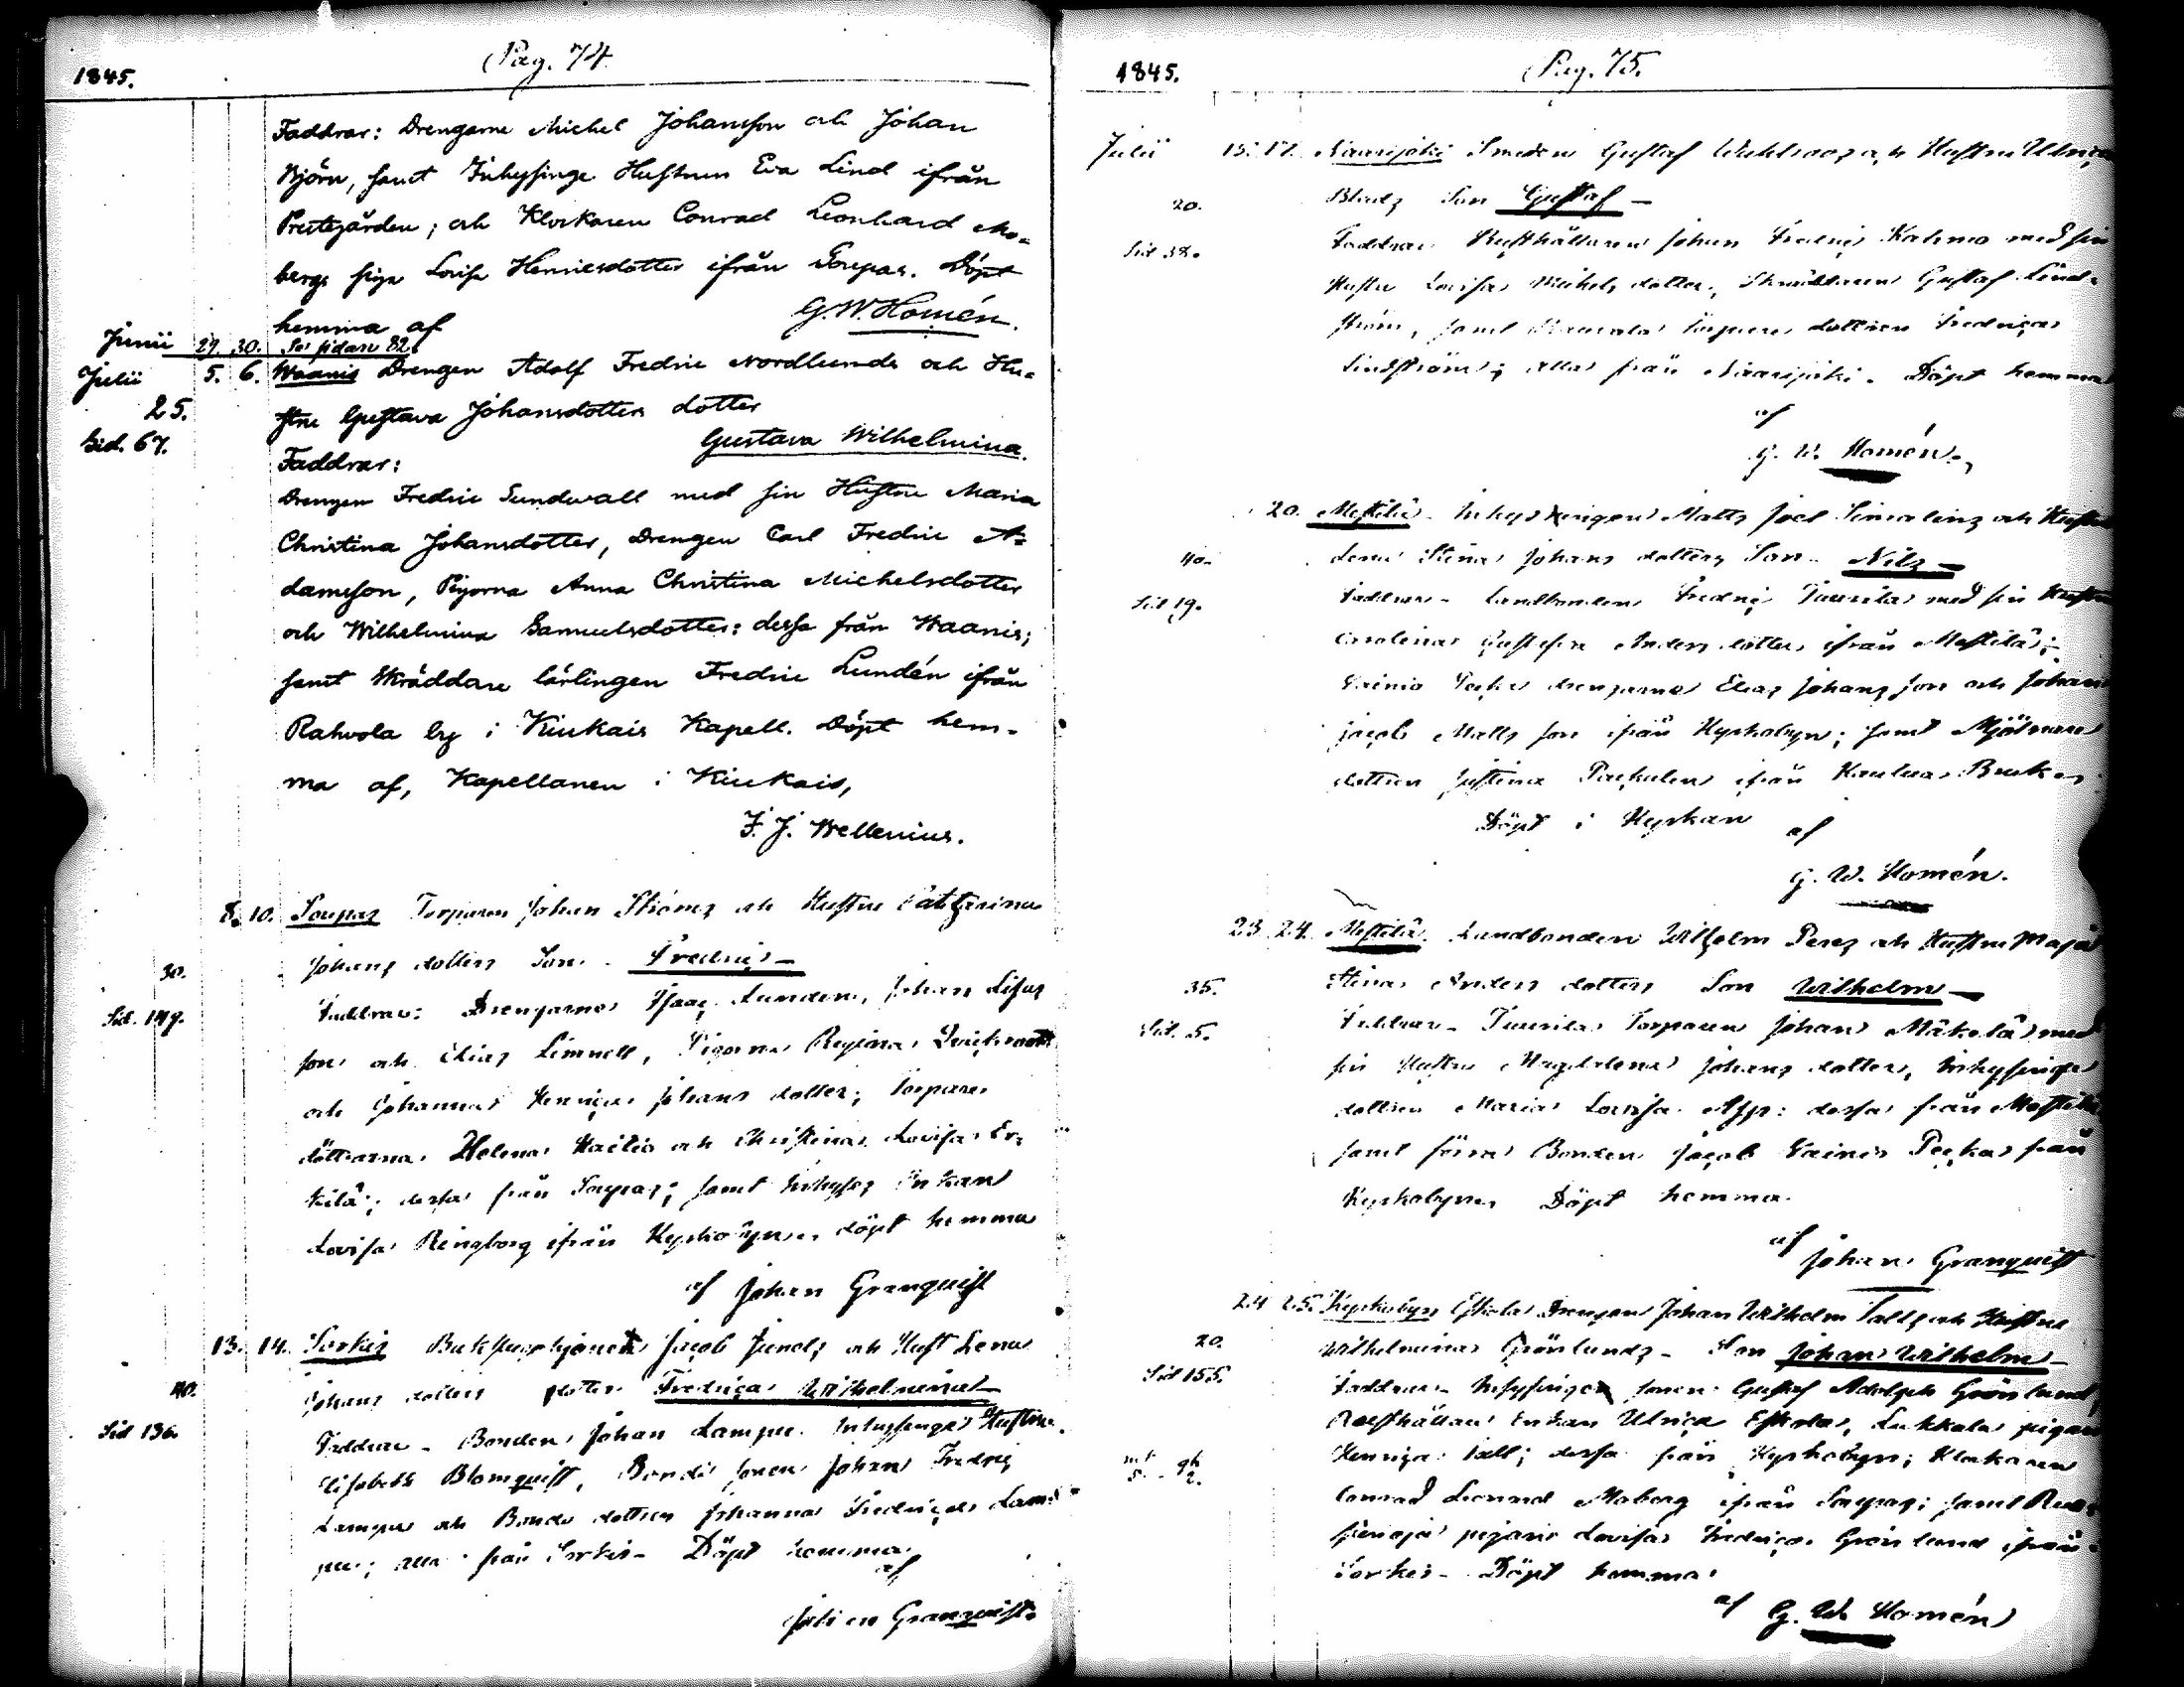 1845. Pag. 74.
Faddrar: Drengarne Michel Johansson och Johan
Björn, samt Inhysinge Hustrun Eva Lind ifrån
Prestegården; och Klockaren Conrad Leonhard Mo-
bergs piga Lovisa Henricsdotter ifrån Sorpas. Döpt
hemma af G. W. Homén.
Junii 29. 30. Se sidan 82.
Julii 5. 6. Waanis Drengen Adolf Fredric Nordlunds och Hu-
25. stru Gustava Johansdotters dotter
Sid. 67. Gustava Wilhelmina.
Faddrar:
Drengen Fredric Sundwall med sin Hustru Maria
Christina Johansdotter, Drengen Carl Fredric A-
damsson, Pigorna Anna Christina Michelsdotter
och Wilhelmina Samuelsdotter: dessa från Waanis;
samt Skräddare lärlingen Fredric Lundén ifrån
Rahvola by i Kiukais Kapell. Döpt hem-
ma af, Kapellanen i Kiukais,
F. J. Wellenius.
8. 10. Torparen Johan Ströms och Hustru Catharina
30. Johans dotters Son. Fredric
Faddrar: Drengarne Isaac Lunden, Johan
son och Elias Limnell, Pigorna Regina
och Johanna Henrica Johans dotter; Torpare
döttrarna Helena och Christina Lovisa Er-
kilä; dessa från samt Inhyses Enkan
Lovisa Ringborg ifrån Kyrkobyn. döpt hemma
af Johan Granquist
13. 14. Sorkis Jacob och Hust Lena
40. Johans dotters dotter Fredrica Wilhelmina
Sid 136. Faddrar - Bonden Johan Lampu. Inhysinge Hustru
Elisabeth Blomquist, Bonde sonen Johan Fredric
Lampu och Bonde dottren Johanna Fredrica Lam-
pu; alla från Sorkis - Döpt hemma
af
Johan Granquist.
1845. Pag. 75.
Julii 15. 17. Naarijoki Smeden Gustaf och Hustru Ulrica
20. Son Gustaf
Sid 38. Faddrar Rusthållaren Johan Fredric med sin
Hustru Lovisa Michels dotter, Skräddaren Gustaf Lind-
ström, samt dottren Fredrica
Lindström; alla från Naarijoki. Döpt hemma
af
G. W. Homén.
20. Mestilä. Matts Joel och Hustru
40. Lena Stina Johans dotters Son - Nils
Sid 19. Faddrar - Landbonden Fredric Tuurila med sin Hustru
Carolina Gustafva Anders dotter ifrån Mestilä;
Wainio Pecka drengarne Elias Johans son och Johan
Jacob Matts son ifrån Kyrkobyn; samt Mjölnare
dottren Justina ifrån Kauttua Bruk
Döpt i Kyrkan af
G. W. Homén.
23 24. Mestilä. Landbonden Wilhelm Peres och Hustru Maja
35. Stina Anders dotters Son Wilhelm
Sid. 5. Faddrar - Tuurila Torparen Johan Mäkelä med
sin Hustru Magdalena Johans dotter, Inhysinge
dottren Maria Lovisa dessa från Mestilä
samt förra Bonden Jacob Wainio Pecka från
Kyrkobyn. Döpt hemma.
af Johan Granquist
24 25. Kyrkobyn Eskola Drengen Johan Wilhelm Talls och Hustru
20. Wilhelmina Grönlunds - Son Johan Wilhelm
Sid 155. Faddrar - Inhysinge sonen Gustaf Adolph Grönlund,
Rusthållare Enkan Ulrica Eskola, Lukkala pigan
Henrica Tall; dessa från Kyrkobyn; Klockaren
Conrad Leonard Moberg ifrån samt
pigan Lovisa Fredrica Grönlund ifrån
Sorkis - Döpt hemma
af G. W. Homén